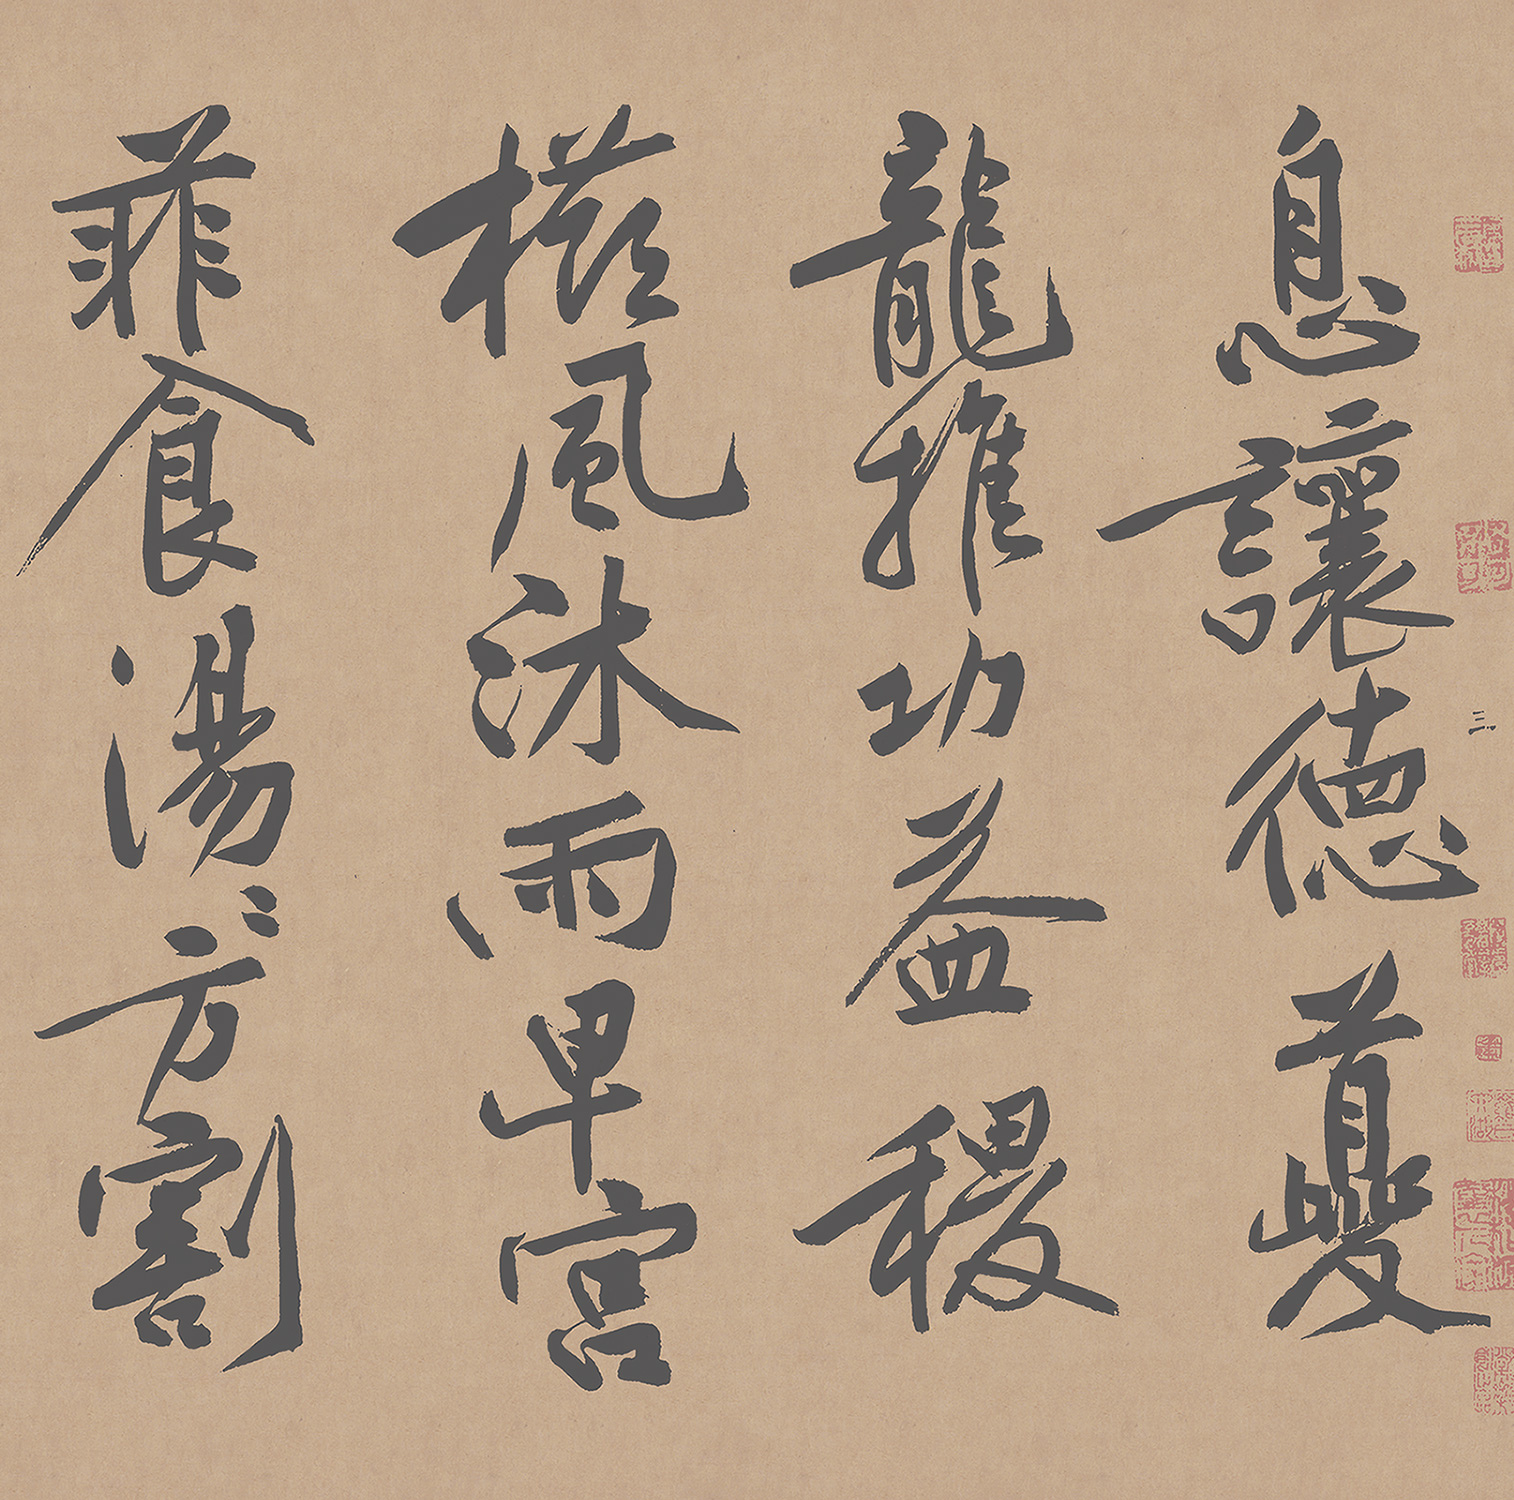 息讓德夔
龍推功益稷
櫛風沐雨卑宮
菲食湯〻方割
三